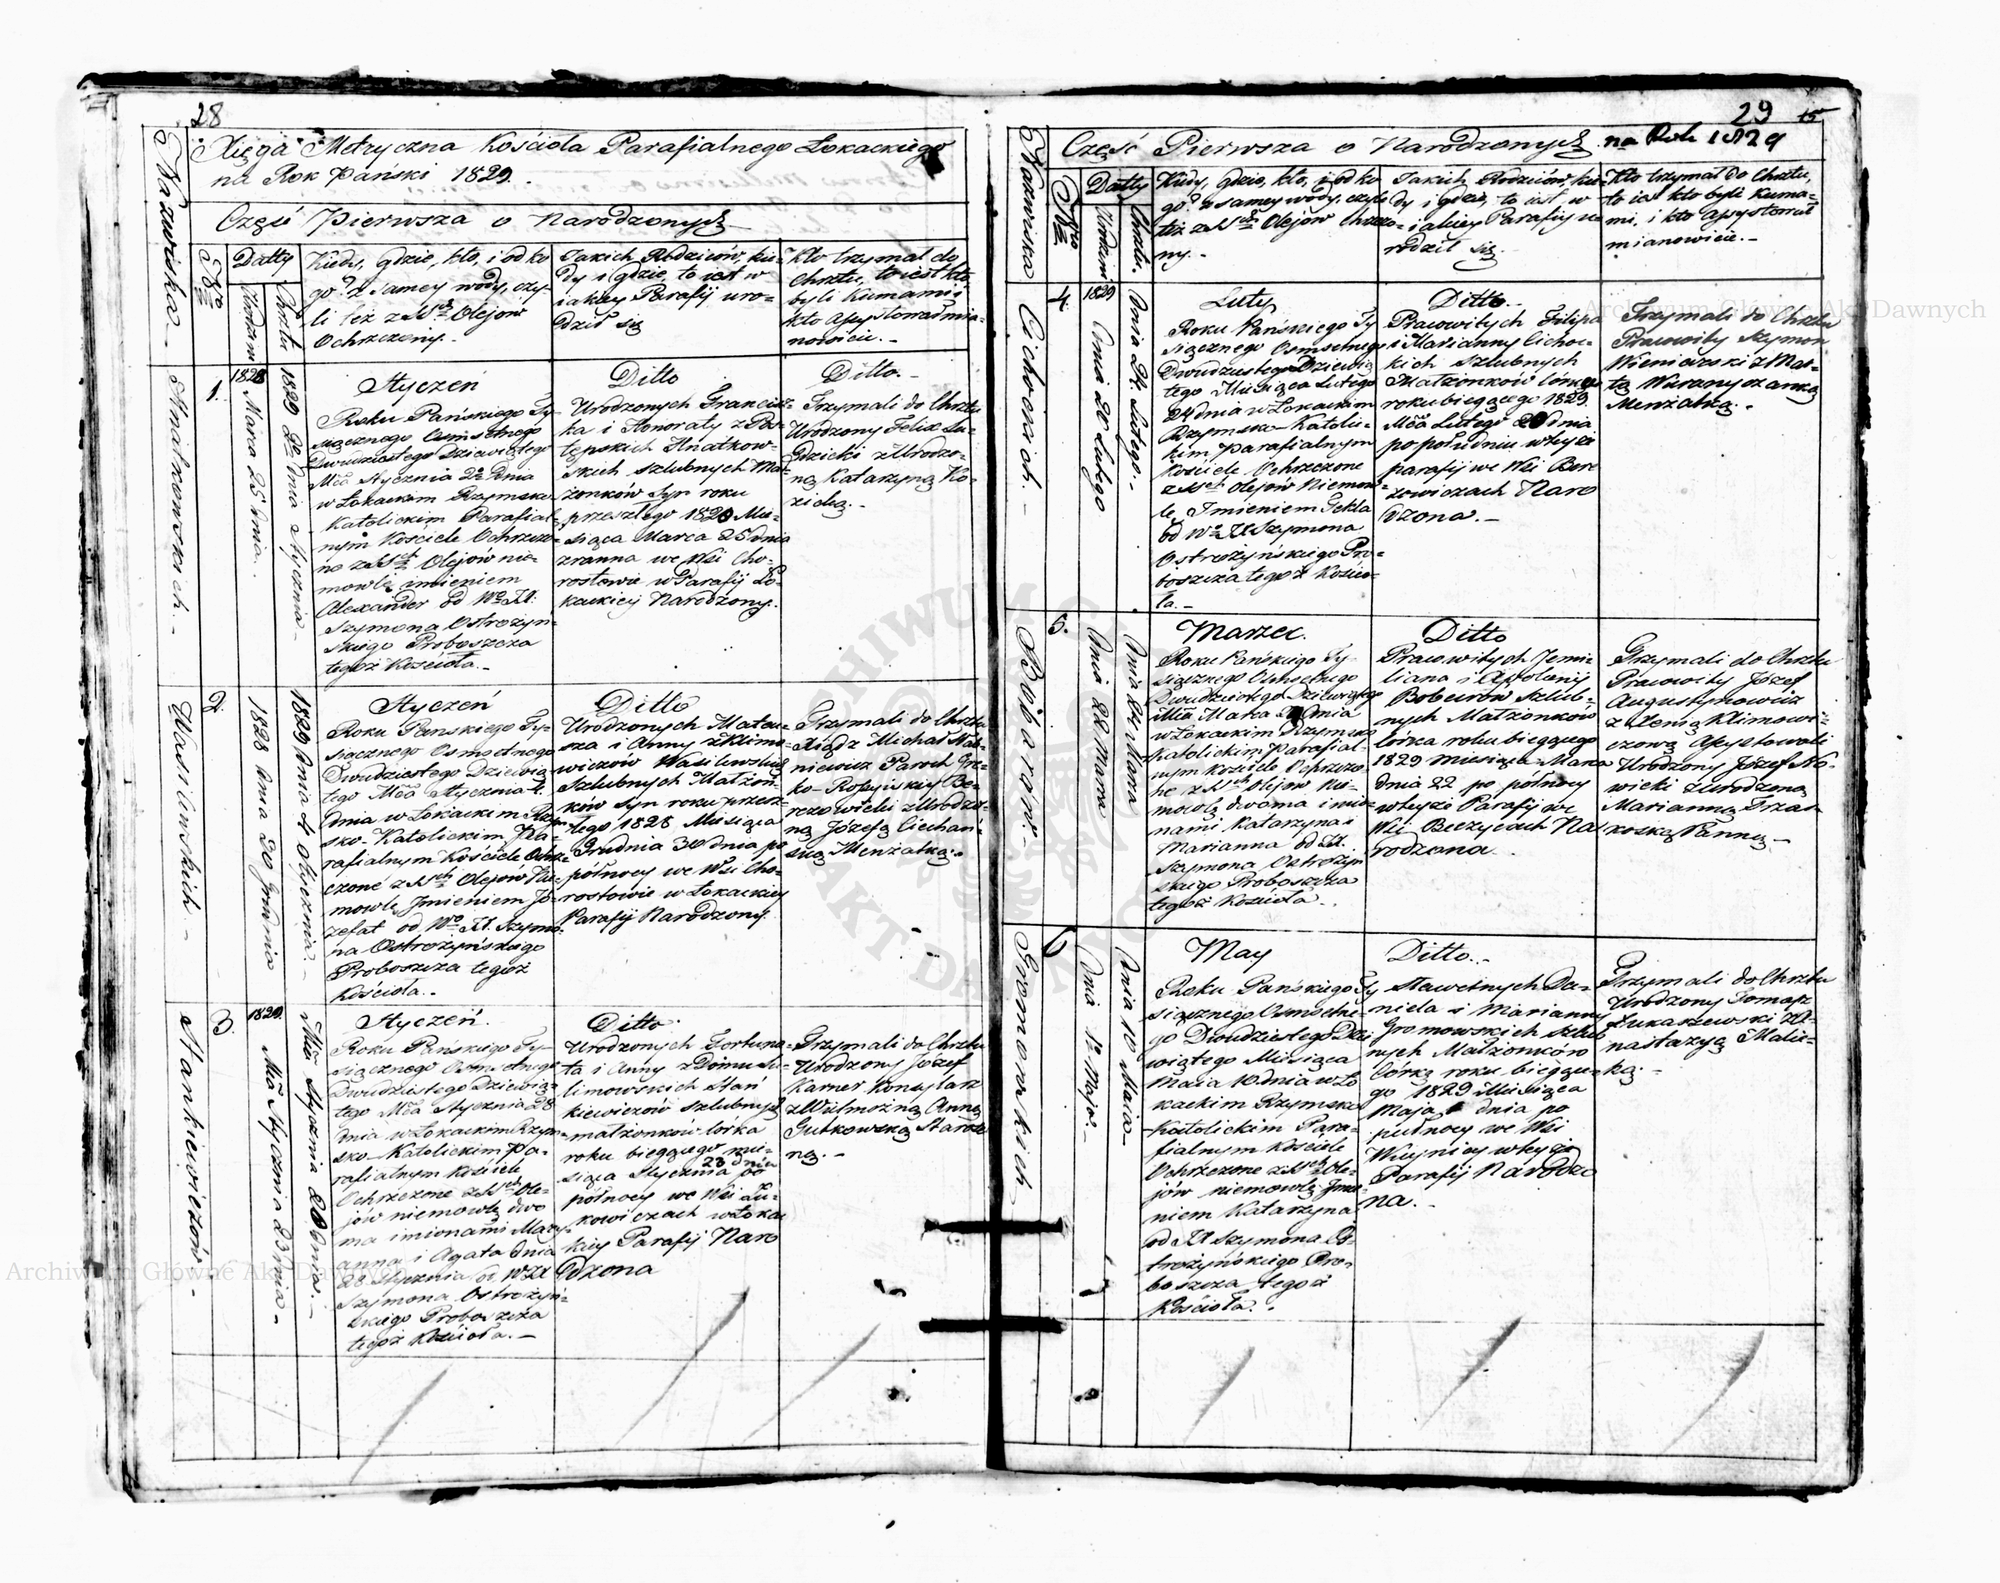 28
Xięga Metryczna Kościoła Parafialnego Łokackiego
na Rok Pański 1829.
Część Pierwsza o Narodzonych
Nazwiska.
Nro
Datty
Urodzenia
Chrztu
Kiedy, gdzie, kto, i od ko
go? z samey wody, czy-
li też z SSch Olejow
Ochrzczony.-
Jakich Rodziców, kie-
dy i gdzie, to iest w
iakiey Parafij uro-
dził się
Kto trzymał do
Chrztu, to iest kto
byli Kumami i
kto Assystował mia-
nowicie.-
1.
1828 Marca 25 dnia.
1829 2o dnia Stycznia-
Styczeń
Roku Pańskiego Ty-
siącznego Osmsetnego
Dwudziestego Dziewiątego
Mca Stycznia 2o Dnia
w Łokackim Rzymsko
Katolickim Parafial-
nym Kościele Ochrzczo-
no z SSch Olejów nie-
mowlę imieniem
Alexander od Wo JX:
Szymona Ostrożyń-
skiego Proboszcza
tegoż Kościoła.-
Ditto
Urodzonych Francisz-
ka i Honoraty z
Hnatkow-
skich szlubnych Mał-
żonków Syn roku
przeszłego 1828 Mie-
siąca Marca 25 dnia
zranna we Wsi Cho-
rostowie w Parafij Ło-
kackiey Narodzony.
Ditto.-
Trzymali do Chrztu
Urodzony Felix Lu-
dzicki z Urodzo-
ną Katarzyną Ko-
zicką.-
Wasilewskich -
2.
1828 Dnia 30 Grudnia
1829 Dnia 4 Stycznia.-
Styczeń
Roku Pańskiego Ty-
siącznego Osmsetnego
Dwudziestego Dziewią-
tego Mca Stycznia 4.
dnia w Łokackim Rzym-
sko-Katolickim Pa-
rafialnym Kościele Ochrz-
czone z SSch Olejow Nie-
mowlę Jmieniem Jó-
zefat od Wo JX. Szymo-
na Ostrożyńskiego
Proboszcza tegoż
Kościoła.-
Ditto
Urodzonych Mateu-
sza i Anny z Klimo-
wiczów Wasilewskich
Szlubnych Małżon-
ków Syn roku przesz-
łego 1828 Miesiąca
Grudnia 30 dnia po
północy we Wsi Cho-
rostowie w Łokackiey
Parafij Narodzony
Trzymali do Chrztu
Xiądz Michał
Paroch Gre-
ko-Rossyiskiy Be-
rezowicki z Urodzo-
ną Józefą Ciechań-
ską Menżatką.-
Stankiewiczów.
3.
1829. Mca Stycznia 23 dnia-
Mca Stycznia 28 dnia.-
Styczeń.
Roku Pańskiego Ty-
siącznego Osmsetnego
Dwudziestego Dziewią-
tego Mca Stycznia 28
dnia w Łokackim Rzym-
sko-Katolickim Pa-
rafialnym Kościele
Ochrzczone z SSch Ole-
jów niemowlę dwo
ma imionami Mary-
anna i Agata dnia
28 Stycznia od Wo JX
Szymona Ostrożyń-
skiego Proboszcza
tegoż Kościoła.-
Ditto.
Urodzonych Fortuna-
ta i Anny z Domu Su-
limowskich Stań
kiewiczów szlubnych
małżonków córka
roku bieżącego mie-
siąca Stycznia 23 dnia po
północy we Wsi Lu-
kowiczach w Łokac
kiey Parafij Naro
dzona
Trzymali do Chrztu
Urodzony Józef
Karner Konsyliarz
z Wielmożną Anną
Gutkowską Starości-
ną.-
29 15
Część Pierwsza o Narodzonych na Rok 1829
Nazwiska
Nro
Datty
Urodzenia
Chrztu.
Kiedy, gdzie, kto, i od ko
go? z samey wody, czyli
też z SSch Olejow Chrzczo-
ny.-
Jakich Rodziców, kie-
dy i gdzie, to iest, w
iakiey Parafij u
rodził się.
Kto trzymał do Chrztu,
to iest kto byli Kuma-
mi, i kto Assystował
mianowicie.-
Cichockich.-
4.
1829 Dnia 20 Lutego
Dnia 24 Lutego.-
Luty
Roku Pańskiego Ty
siącznego Osmsetnego
Dwudziestego Dziewią
tego Miesiąca Lutego
24 dnia w Łokackim
Rzymsko-Katolic-
kim Parafialnym
Kościele Ochrzczone
z SSch Olejów Niemow-
lę Jmieniem Tekla
od Wo JX Szymona
Ostrożyńskiego Pro-
boszcza tegoż Kościo-
ła.-
Ditto.-
Pracowitych Filipa
i Marianny Cichoc-
kich Szlubnych
Małżonków córka
roku bieżącego 1829
Mca Lutego 20 dnia
po południu w teyże
parafij we Wsi Bere
zowiczach Naro
dzona.-
Trzymali do Chrztu
Pracowity Szymon
Wieniewski z Mał-
Menżatką.-
Bubarów.-
5.
Dnia 22 Marca
Dnia 24 Marca
Marzec.
Roku Pańskiego Ty-
siącznego Osmsetnego
Dwudziestego Dziewiątego
Mca Marca dnia
w Łokackim Rzymsko
Katolickim Parafial-
nym Kościele Ochrzczo-
ne z SSch Olejow Nie-
mowlę dwoma imio-
nami Katarzyna i
Marianna od JX.
Szymona Ostrożyń
skiego Proboszcza
tegoż Kościoła.-
Ditto
Pracowitych Jemi-
liana i Apolonij
Boberow Szlub-
nych Małżonkow
córka roku bieżącego
1829 miesiąca Marca
dnia 22 po północy
w teyże Parafij we
Wsi Beczycach Na
rodzona.
Trzymali do Chrztu
Pracowity Józef
Augustynowicz
z Xenią Klimowi-
czową Assystowali
Urodzony Józef No-
wicki z Urodzoną
Marianną
Panną-
Gromowskich-
6
Dnia 1o Maja.-
Dnia 10 Maia-
May
Roku Pańskiego Ty
siącznego Osmsetne-
go Dwudziestego Dzie
wiątego Miesiąca
Maia 10 dnia w Ło
kackim Rzymsko
Katolickim Para-
fialnym Kościele
Ochrzczone z SSch Ole-
jów niemowlę Jmie-
niem Katarzyna
od JX Szymona Os-
trożyńskiego Pro-
boszcza tegoż
Kościoła.-
Ditto.-
Sławetnych Da-
niela i Marianny
Gromowskich szlub
nych Małżonków
córka roku bieżące-
go 1829 Miesiąca
Maja dnia po
północy we Wsi
w teyże
Parafij Narodzo
na.-
Trzymali do Chrztu
Urodzony Tomasz
Łukaszewski z A-
nastazyą Malic-
ką.-
Archiwum Główne Akt Dawnych
Archiwum Główne Akt Dawnych